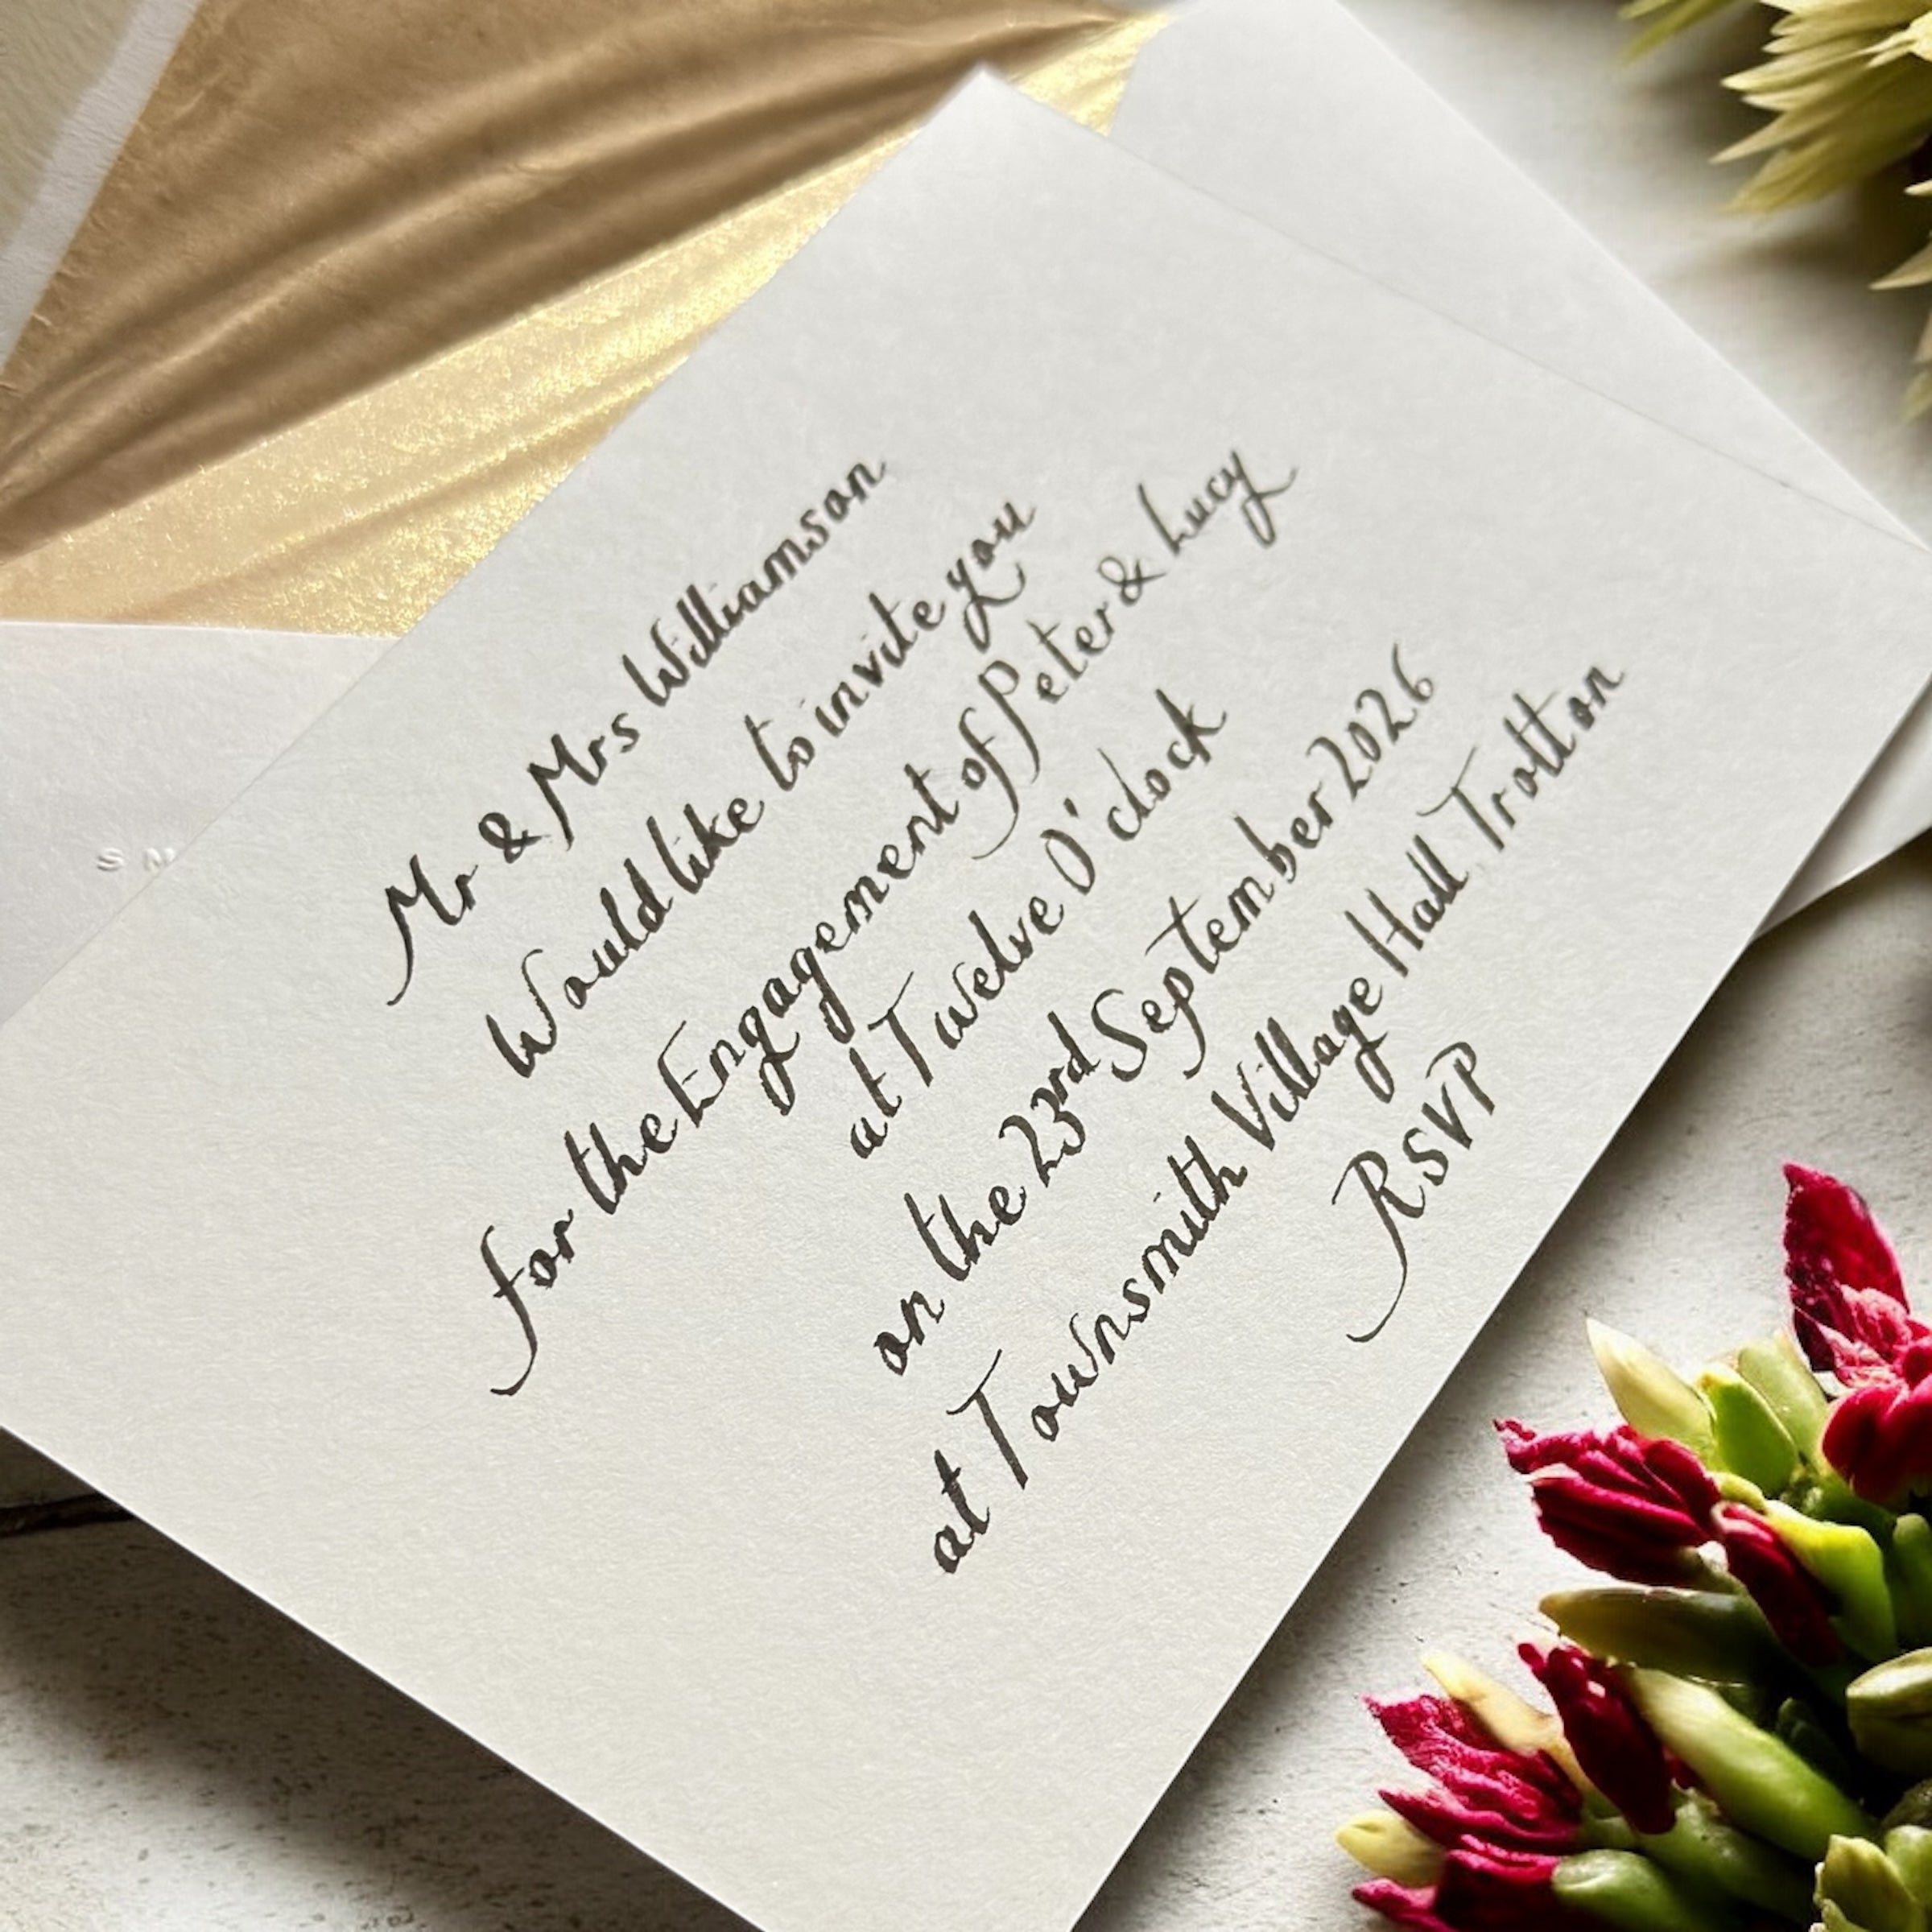 Mr & Mrs Williamson
Would like to invite you
for the Engagement of Peter & Lucy
at Twelve O'clock
on the 23rd September 2026
at Townsmith Village Hall, Trotton
RSVP